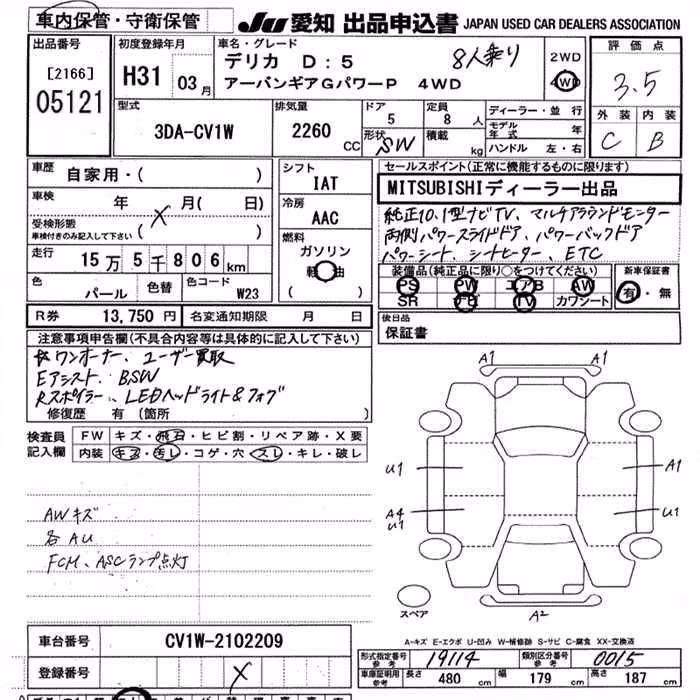 車内保管・守衛保管
JU 愛知 出品申込書 JAPAN USED CAR DEALERS ASSOCIATION
出品番号 [2166] 05121
初度登録年月 H31 03月
車名・グレード
デリカ D:5 8人乗り
アーバンギアGパワーP 4WD
2WD
4WD
評価点 3.5
外装 内装
C B
型式 3DA-CV1W
排気量 2260 CC
ドア 5
定員 8人
形状 SW
積載 kg
ディーラー・並行
モデル年式 年
ハンドル 左・右
車歴 自家用・( )
車検 年 X 月( 日)
受検形態
車検付きのみ記入して下さい ( )
走行 15万5千806km
色 パール 色替 色コード W23
シフト IAT
冷房 AAC
燃料
ガソリン
軽油
( )
セールスポイント(正常に機能するものに限ります)
MITSUBISHIディーラー出品
純正10.1型ナビTV、マルチアラウンドモニター
両側パワースライドドア、パワーバックドア
パワーシート、シートヒーター、ETC
装備品(純正品に限り○をつけてください)
PS PW エアB AW
SR ナビ TV カワシート
新車保証書
有・無
R券 13,750円 名変通知期限 月 日
後日品
保証書
注意事項申告欄(不具合内容等は具体的に記入して下さい)
ワンオーナー、ユーザー買取
Eアシスト、BSW
Rスポイラー、LEDヘッドライト&フォグ
修復歴 有(箇所 )
検査員記入欄
FW キズ・飛石・ヒビ割・リペア跡・X要
内装 キズ・汚し・コゲ・穴・スレ・キレ・破レ
AWキズ
各AU
FCM、ASCランプ点灯
A1 A1
U1 A1
A4 U1 U1
スペア
A2
A-キズ E-エクボ U-凹み W-補修跡 S-サビ C-腐食 XX-交換済
車台番号 CV1W-2102209
登録番号 X
形式指定番号 参考 19114
類別区分番号 参考 0015
車庫証明用 参考 長さ 480cm 幅 179cm 高さ 187cm